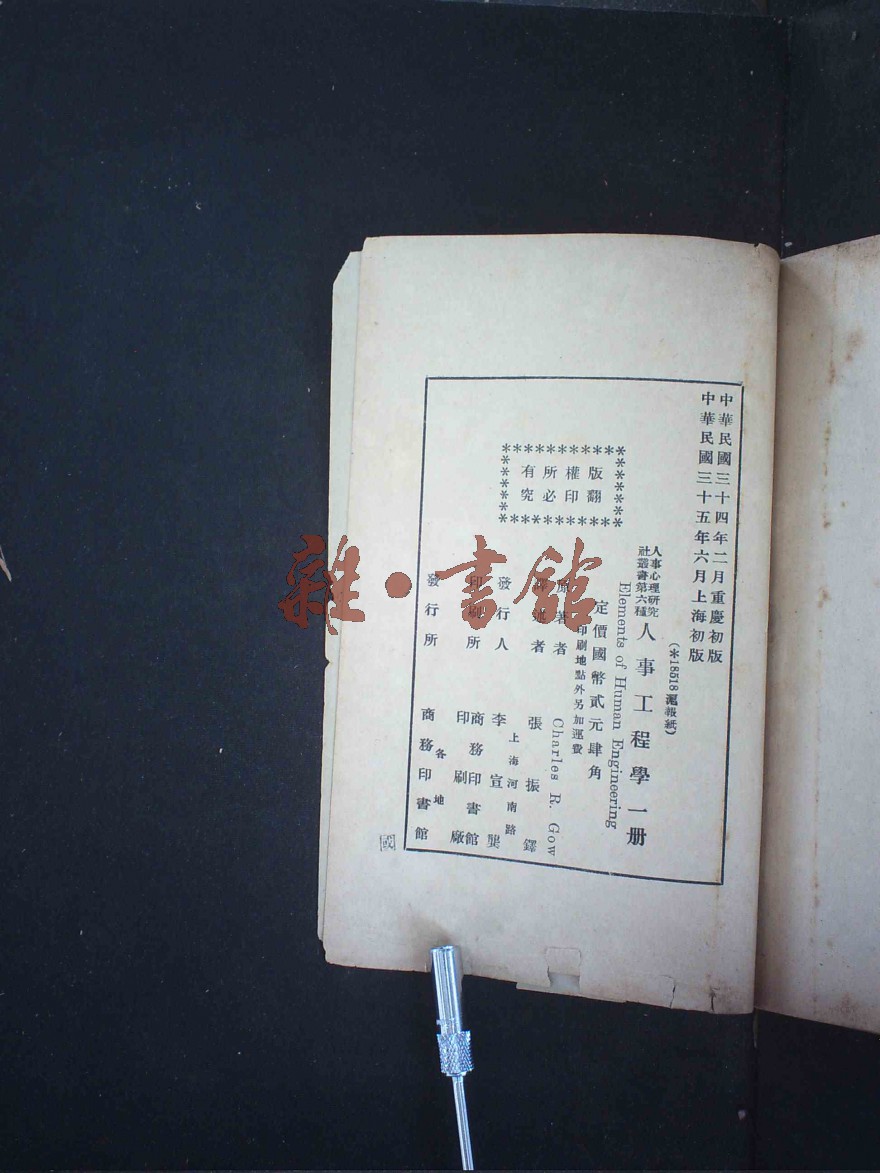 中華民國三十四年二月重慶初版
中華民國三十五年六月上海初版
(*18518滬報紙)
人事心理研究
社叢書第六種
人事工程學一册
Elements of Human Engineering
定價國幣貳元肆角
印刷地點外另加運費
版權所有
翻印必究
原著者 Charles R. Gow
譯述者 張振鐸
發行人 李宣龔
上海河南路
印刷所 商務印書館
印刷廠
各地
發行所 商務印書館
雜·書館